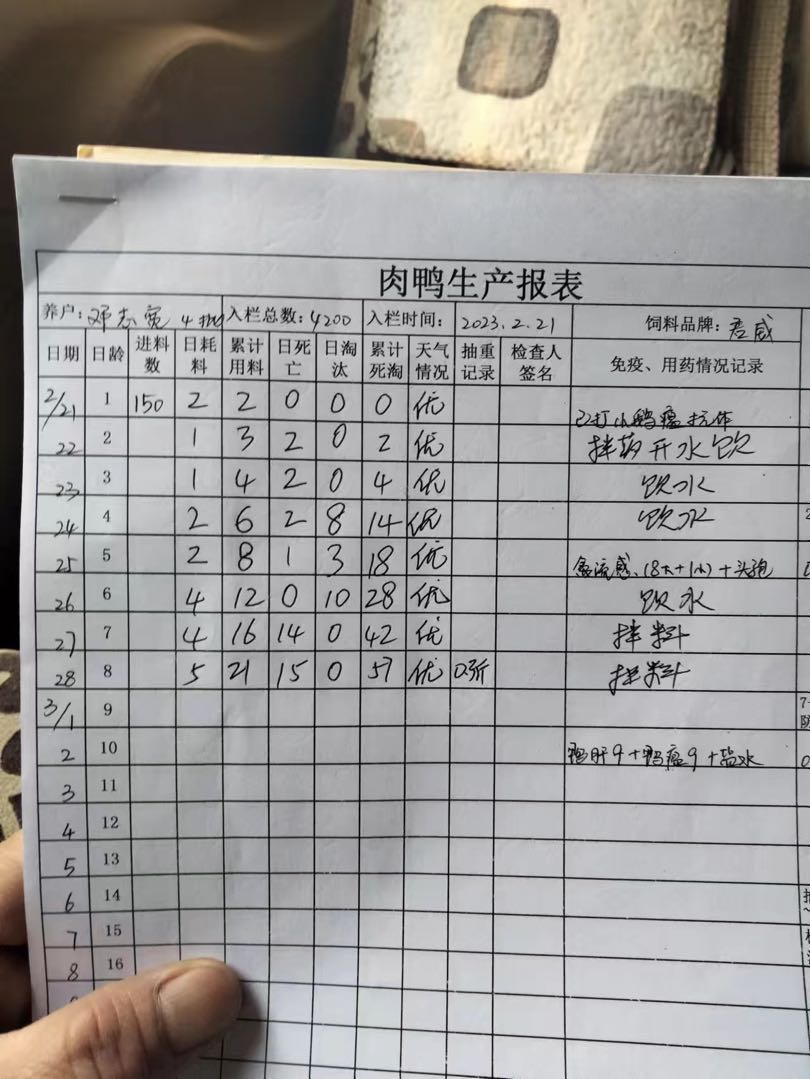 肉鸭生产报表
养户: 邓志宽 4批 入栏总数: 4200 入栏时间: 2023.2.21 饲料品牌: 君威
日期 日龄 进料数 日耗料 累计用料 日死亡 日淘汰 累计死淘 天气情况 抽重记录 检查人签名 免疫、用药情况记录
2/21 1 150 2 2 0 0 0 优 已打小鹅瘟抗体
22 2 1 3 2 0 2 优 开水饮
23 3 1 4 2 0 4 优 饮水
24 4 2 6 2 8 14 优 饮水
25 5 2 8 1 3 18 优 禽流感
26 6 4 12 0 10 28 优 饮水
27 7 4 16 14 0 42 优 拌料
28 8 5 21 15 0 57 优 拌料
3/1 9
2 10 鸭肝9+鸭瘟9+盐水
3 11
4 12
5 13
6 14
7 15
8 16